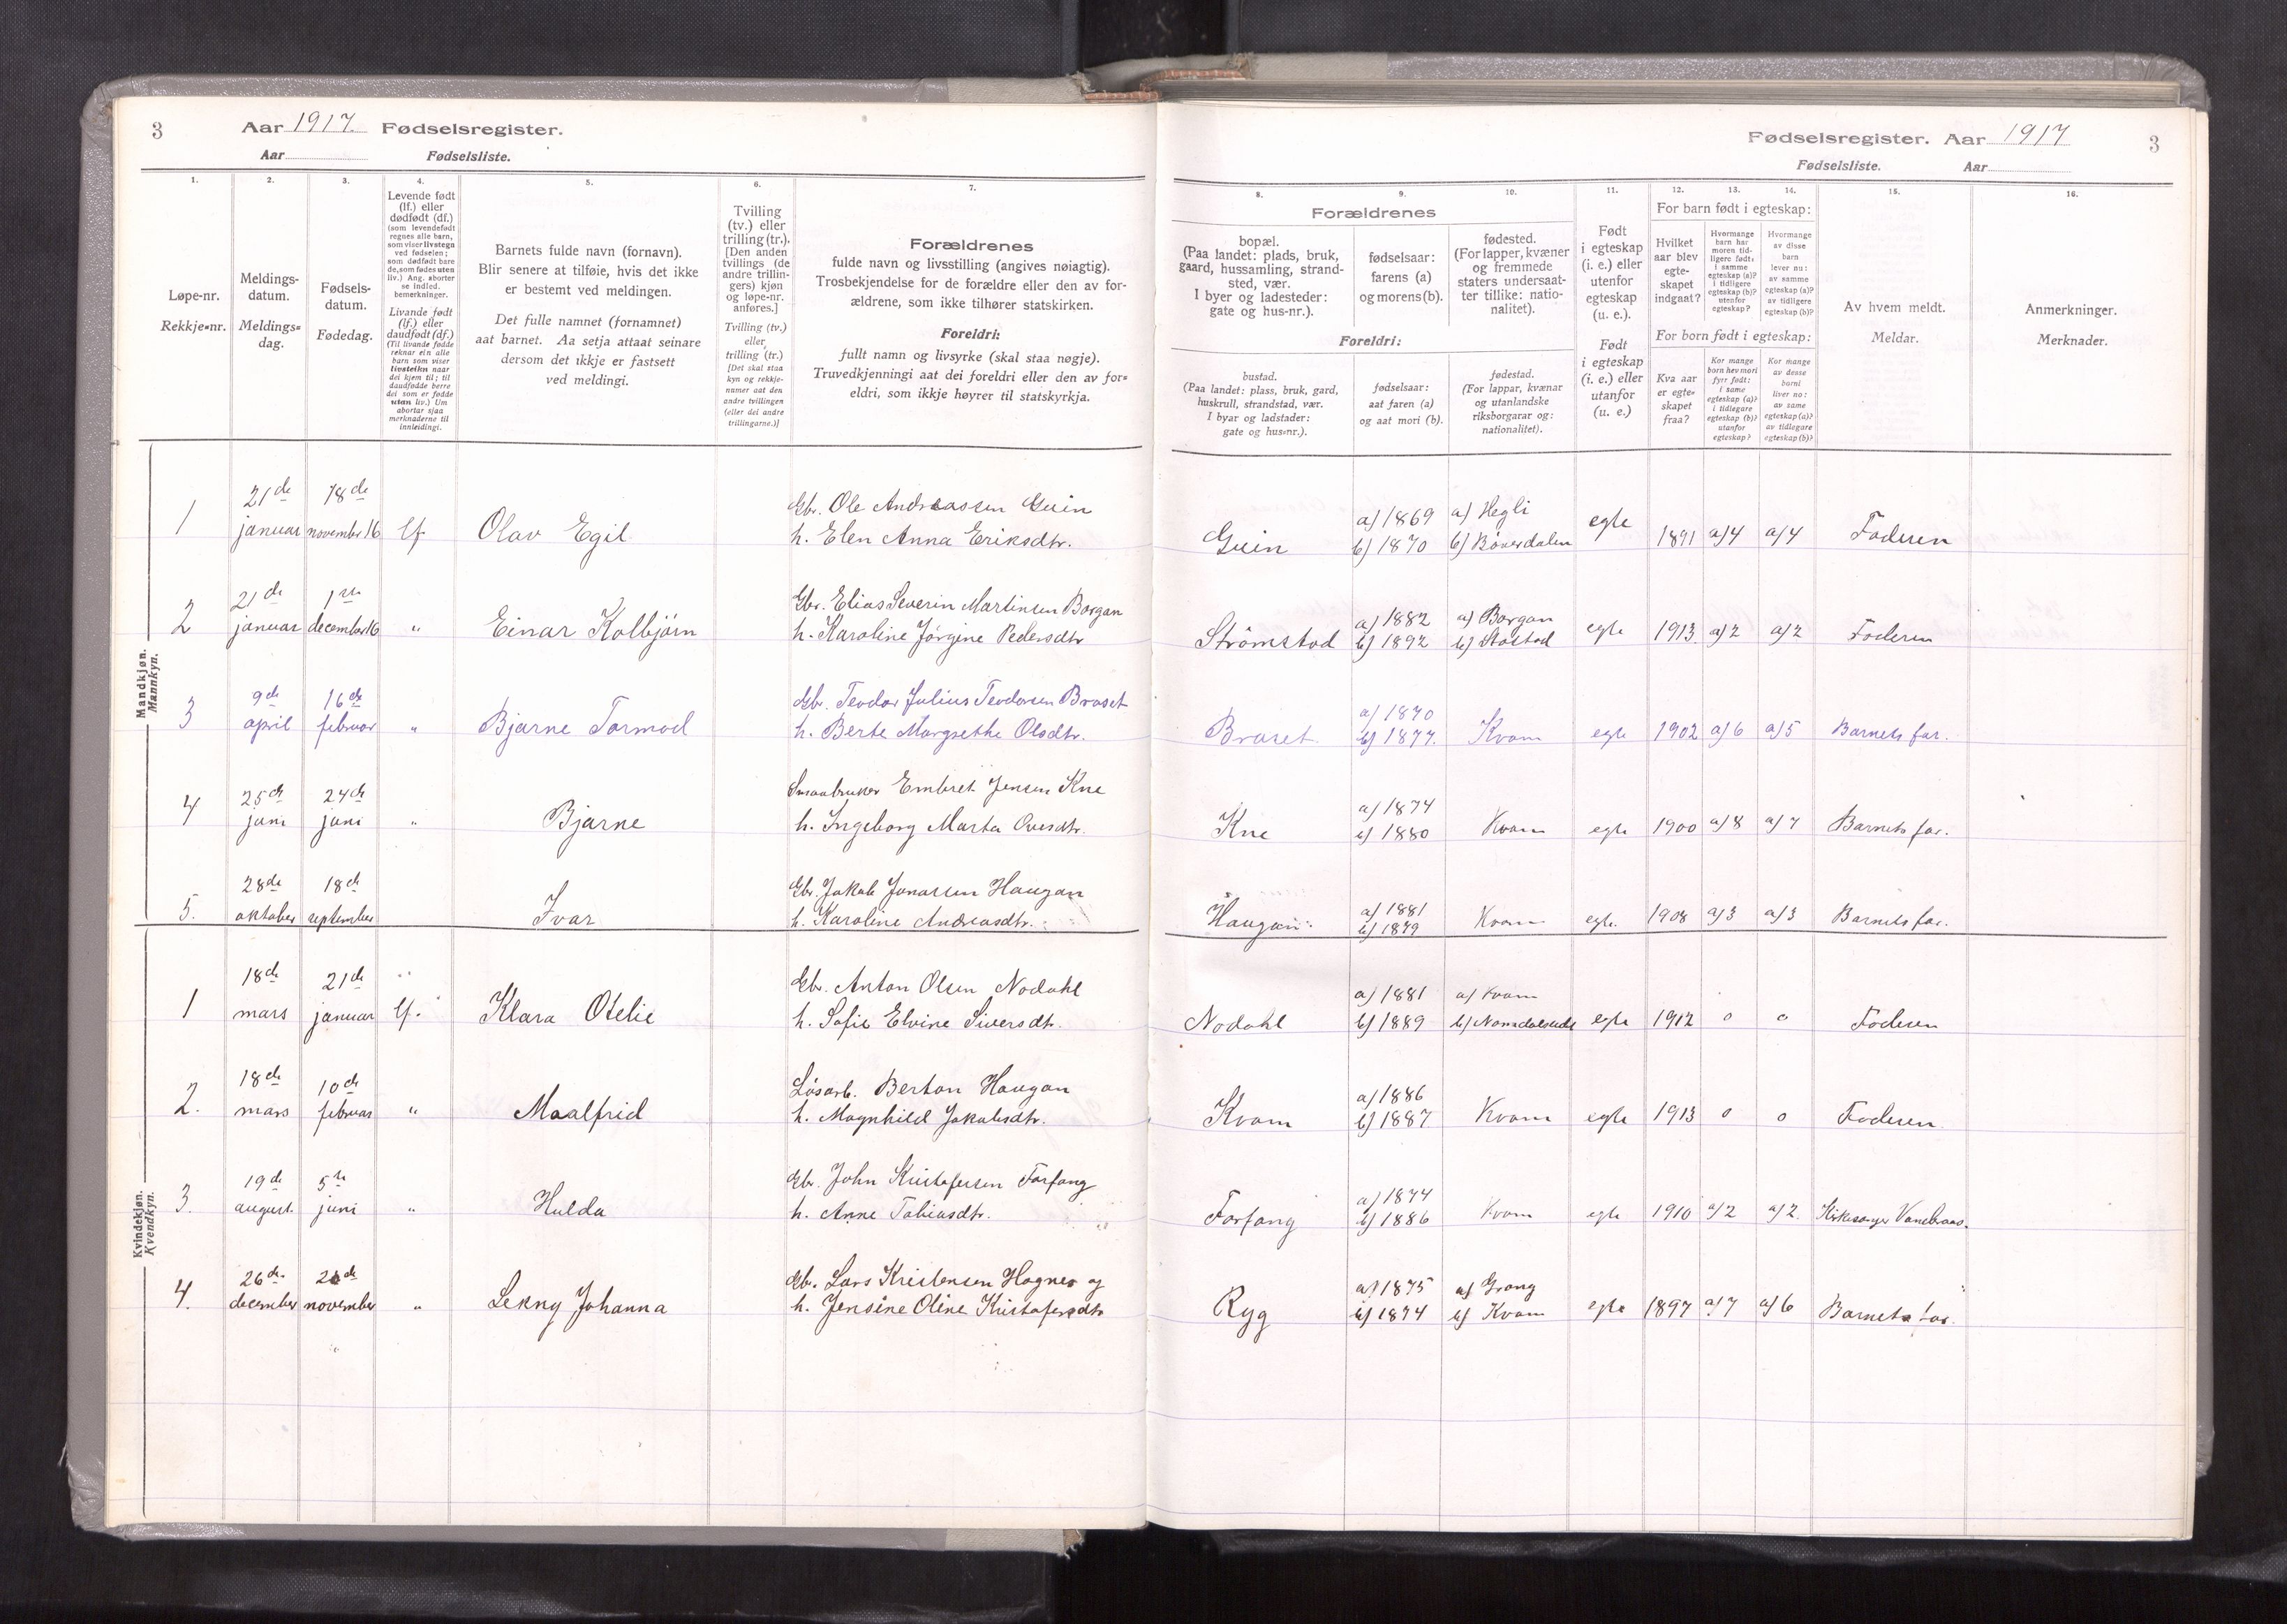 3 Aar 1917. Fødselsregister.
Aar Fødselsliste.
1. 2. 3. 4. 5. 6. 7.
Løpe-nr.
Rekkje=nr.
Meldings-
datum.
Meldings=
dag.
Fødsels-
datum.
Fødedag.
Levende født
(lf.) eller
dødfødt (df.)
(som levendefødt
regnes alle barn,
som viser livstegn
ved fødselen;
som dødfødt bare
de, som fødes uten
liv.) Ang. aborter
se indled.
bemerkninger.
Livande født
(lf.) eller
daudfødt (df.)
(Til livande fødde
reknar ein alle
born som viser
livsteikn naar
dei kjem til; til
daudfødde berre
dei som er fødde
utan liv.) Um
abortar sjaa
merknaderne til
innleidingi.
Barnets fulde navn (fornavn).
Blir senere at tilføie, hvis det ikke
er bestemt ved meldingen.
Det fulle namnet (fornamnet)
aat barnet. Aa setja attaat seinare
dersom det ikkje er fastsett
ved meldingi.
Tvilling
(tv.) eller
trilling (tr.).
[Den anden
tvillings (de
andre trillin-
gers) kjøn
og løpe-nr.
anføres.]
Tvilling (tv.)
eller
trilling (tr.)
[Det skal staa
kyn og rekkje-
numer aat den
andre tvillingen
(eller dei andre
trillingarne.)]
Forældrenes
fulde navn og livsstilling (angives nøiagtig).
Trosbekjendelse for de forældre eller den av for-
ældrene, som ikke tilhører statskirken.
Foreldri:
fullt namn og livsyrke (skal staa nøgje).
Truvedkjenningi aat dei foreldri eller den av for=
eldri, som ikkje høyrer til statskyrkja.
Mandkjøn.
Mannkyn.
21de 18de Gbr. Ole Andreassen Guin
1 januar november 16 lf. Olav Egil h. Elen Anna Eriksdtr.
21de 1ste Gbr. Elias Severin Martinsen Borgan
2 januar december 16 " Einar Kolbjörn h. Karoline Jörgine Pedersdtr
9de 16de Gbr. Teodor Julius Teodorsen Braset
3 april februar " Bjarne Tormod h. Berte Margrethe Olsdtr.
25de 24de Smaabruker Embret Jensen Kne
4 juni juni " Bjarne h. Ingeborg Marta Ovesdtr.
28de 18de Gbr. Jakob Jonassen Haugan
5. oktober september Ivar h. Karoline Andreasdtr.
Kvindekjøn.
Kvendkyn.
18de 21de Gbr. Anton Olsen Nodahl
1 mars januar lf. Klara Otelie h. Sofie Elvine Siversdtr.
18de 10de Lösarb. Berton Haugan
2. mars februar " Maalfrid h. Magnhild Jakobsdtr.
19de 5te Gbr. John Kristofersen Forfang
3. august juni " Hulda h. Anne Tobiasdtr.
26de Gbr. Lars Kristensen Hagnes og
4. december november " Johanna h. Jensine Oline Kristofersdtr
Fødselsregister. Aar 1917 3
Fødselsliste. Aar
8. 9. 10. 11. 12. 13. 14. 15. 16.
Forældrenes
bopæl.
(Paa landet: plads, bruk,
gaard, hussamling, strand-
sted, vær.
I byer og ladesteder:
gate og hus-nr.).
fødselsaar:
farens (a)
og morens (b).
fødested.
(For lapper, kvæner
og fremmede
staters undersaat-
ter tillike: natio-
nalitet).
Foreldri:
bustad.
(Paa landet: plass, bruk, gard,
huskrull, strandstad, vær.
I byar og ladstader:
gate og hus=nr.).
fødselsaar:
aat faren (a)
og aat mori (b).
fødestad.
(For lappar, kvænar
og utanlandske
riksborgarar og:
nationalitet).
Født
i egteskap
(i. e.) eller
utenfor
egteskap
(u. e.).
Født
i egteskap
(i. e.) eller
utanfor
(u. e.)
For barn født i egteskap:
Hvilket
aar blev
egte-
skapet
indgaat?
Hvormange
barn har
moren tid-
ligere født:
i samme
egteskap (a)?
i tidligere
egteskap (b)?
utenfor
egteskap?
Hvormange
av disse
barn
lever nu:
av samme
egteskap (a)?
av tidligere
egteskap (b)?
For born født i egteskap:
Kva aar
er egte=
skapet
fraa?
Kor mange
born hev mori
fyrr født:
i same
egteskap (a)?
i tidlegare
egteskap (b)?
utanfor
egteskap?
Kor mange
av desse
borni
liver no:
av same
egteskap (a)?
av tidlegare
egteskap (b)?
Av hvem meldt.
Meldar.
Anmerkninger.
Merknader.
a) 1869 a) Hegli egte
Guin b) 1870 b) Böverdalen 1891 a) 4 a) 4 Faderen
a) 1882 a) Borgan
Strömstad b) 1892 b) Stostad egte 1913. a) 2 a) 2 Faderen
a) 1870
Braset b) 1877. Kvam egte 1902 a) 6 a) 5 Barnets far.
a) 1874
Kne b) 1880 Kvam egte 1900 a) 8 a) 7 Barnets far.
a) 1881
Haugan b) 1879 Kvam egte. 1908 a) 3 a) 3 Barnets far.
a) 1881 a) Kvam
Nodahl b) 1889 b) Namdalseide egte 1912 0 0 Faderen
a) 1886
Kvam b) 1887 Kvam egte 1913 0 0 Faderen
a) 1874
Forfang b) 1886 Kvam egte 1910 a) 2 a) 2. Kirkesanger
a) 1875 a) Grong
Ryg b) 1874 b) Kvam egte 1897 a) 7 a) 6 Barnets far.